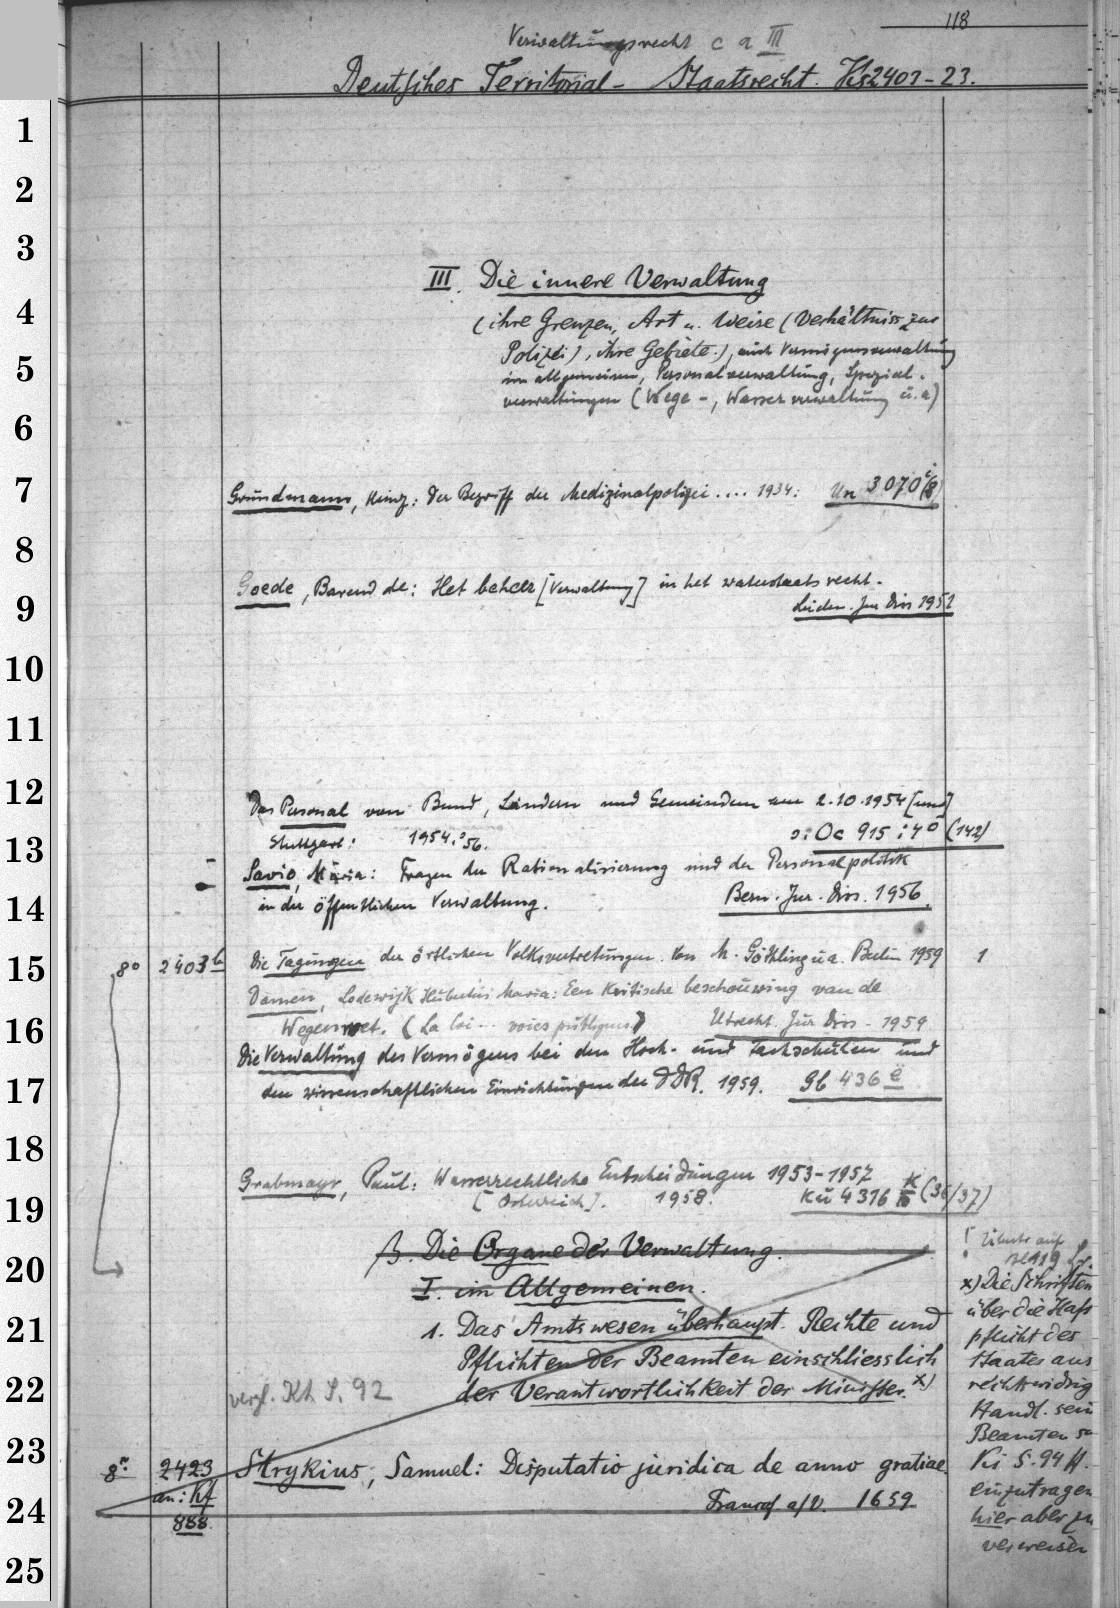 118
Verwaltungsrecht c a III
Deutsches Territorial- Staatsrecht. Ks2403-23.
1
2
3
III. Die innere Verwaltung
4
(ihre Grenzen, Art u. Weise (Verhältniss zur
Polizei), ihre Gebiete.), auch Vermögensverwaltung
5
im allgemeinen, Personalverwaltung, Spezial-
verwaltungen (Wege-, Wasserverwaltung u.a)
6
7
Grundmann, Heinz: Der Begriff der Medizinalpolizei.... 1934: Un 3070
8
Goede, Barend de: Het beheer [Verwaltung] in het waterstaatsrecht.
9
Leiden. Jur Diss 1951
10
11
12
Das Personal von Bund, Ländern und Gemeinden am 2.10.1954 [und]
13
Stuttgart: 1954.'56. o: Oc 915:4° (142)
Savio, Maria: Fragen der Rationalisierung und der Personalpolitik
14
in der öffentlichen Verwaltung. Bern. Jur. Diss. 1956.
15
8° 2403b Die Tagungen der örtlichen Volksvertretungen. Von M. Göthling u.a. Berlin 1959 1
Damen, Lodewijk Hubertus Maria: Een kritische beschouwing van de
16
Wegenwet. (La loi... voies publiques) Utrecht Jur Diss - 1959
Die Verwaltung des Vermögens bei den Hoch- und Fachschulen und
17
den wissenschaftlichen Einrichtungen der DDR. 1959. Gb 436 ë
18
Grabmayr, Paul: Wasserrechtliche Entscheidungen 1953-1957
19
[Österreich]. 1958. Kü 4316 k (36/37)
β. Die Organe der Verwaltung.
20
I. im Allgemeinen.
21
1. Das Amtswesen überhaupt. Rechte und
Pflichten der Beamten einschliesslich
22
vergl. Kt S. 92 der Verantwortlichkeit der Minister. x)
x) Die Schriften
über die Haft
pflicht des
Staates aus
rechtswidrig
Handl. sein
Beamten
Ki S. 94 ff.
einzutragen
hier aber zu
verweisen
23
8° 2423 Strykius, Samuel: Disputatio juridica de anno gratiae
24
an: Kf Francof a/V. 1659
888.
25